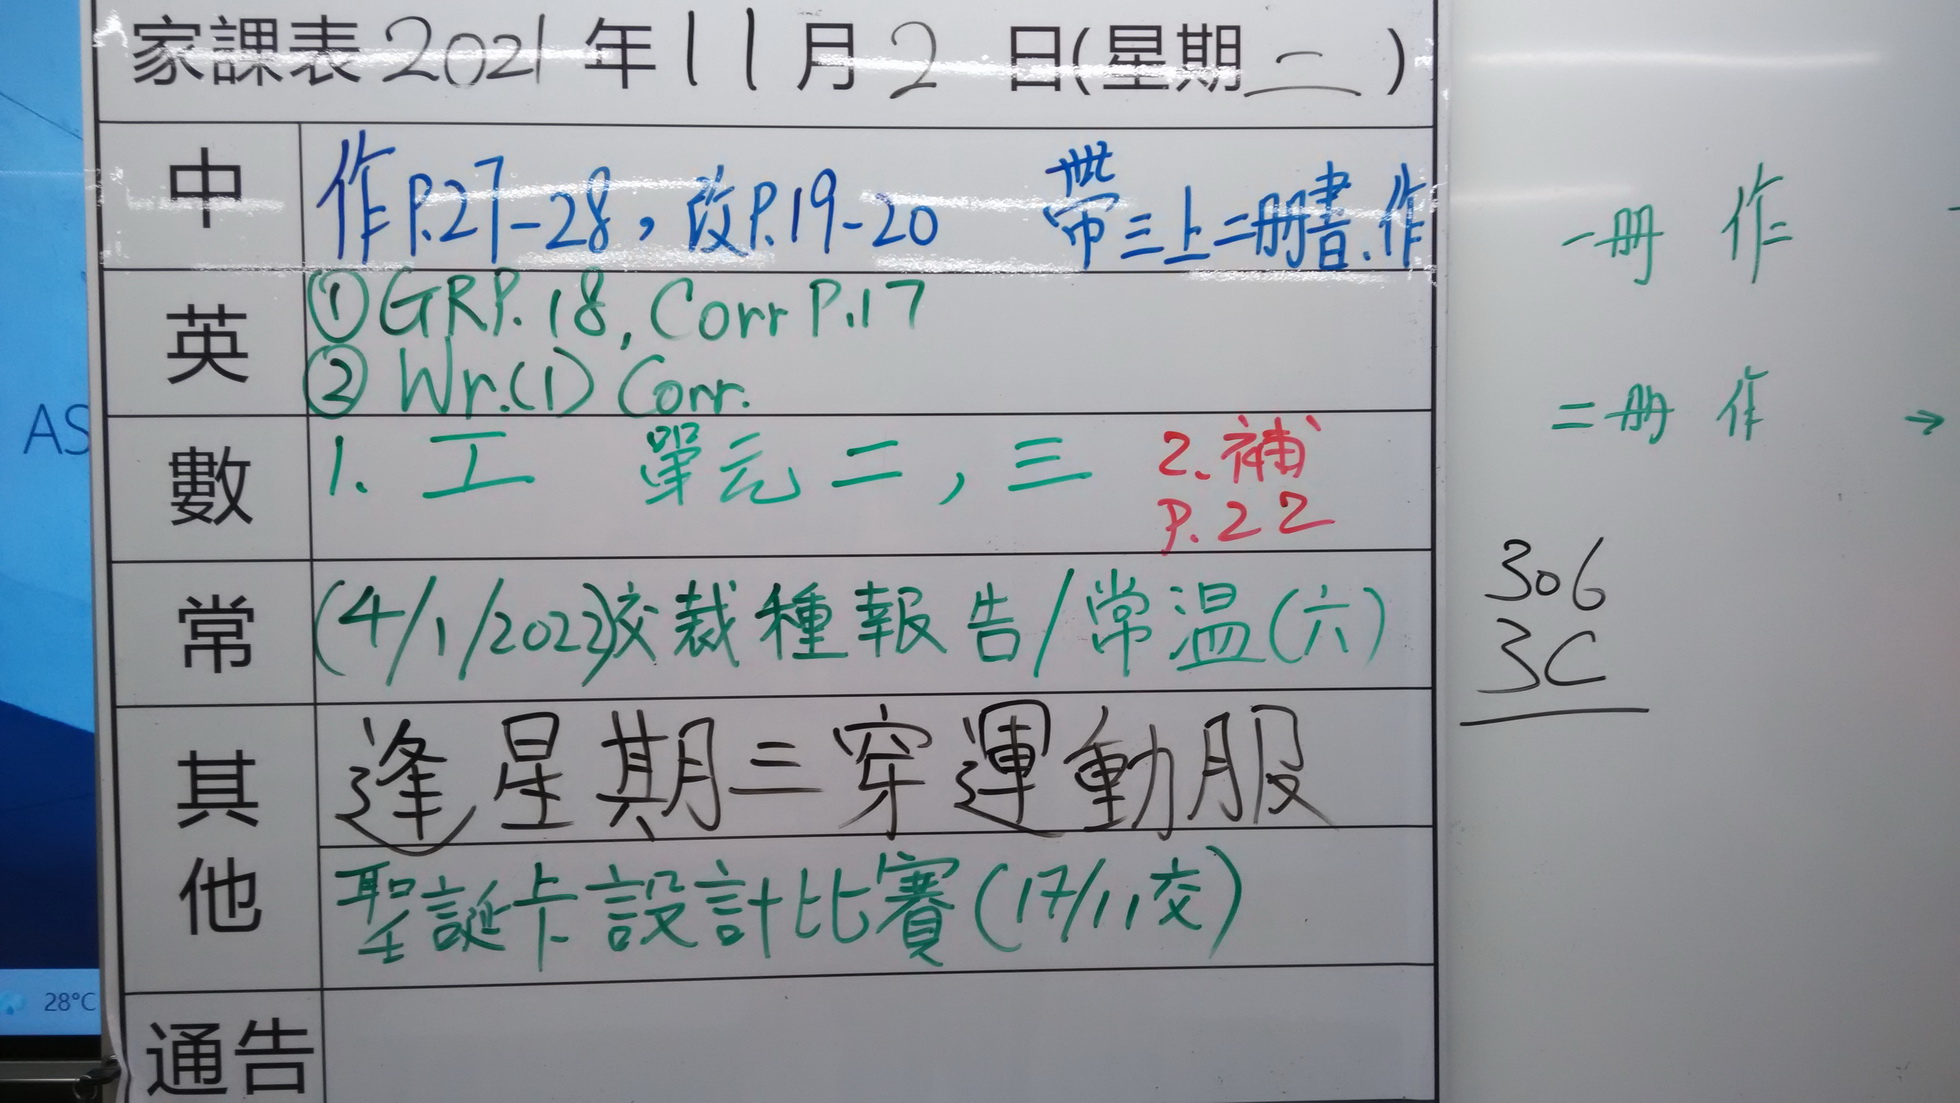 家課表 2021 年 11 月 2 日(星期二)
中
作P.27-28，改P.19-20 帶三上二冊書.作
英
①GRP.18, Corr P.17
② Wr.(1) Corr.
數
1. 工 單元二，三 2.補
P.22
常
(4/1/2022)交栽種報告/常温(六)
其他
逢星期三穿運動服
聖誕卡設計比賽(17/11交)
通告
一冊 作
二冊 作 →
306
3C
AS
28°C